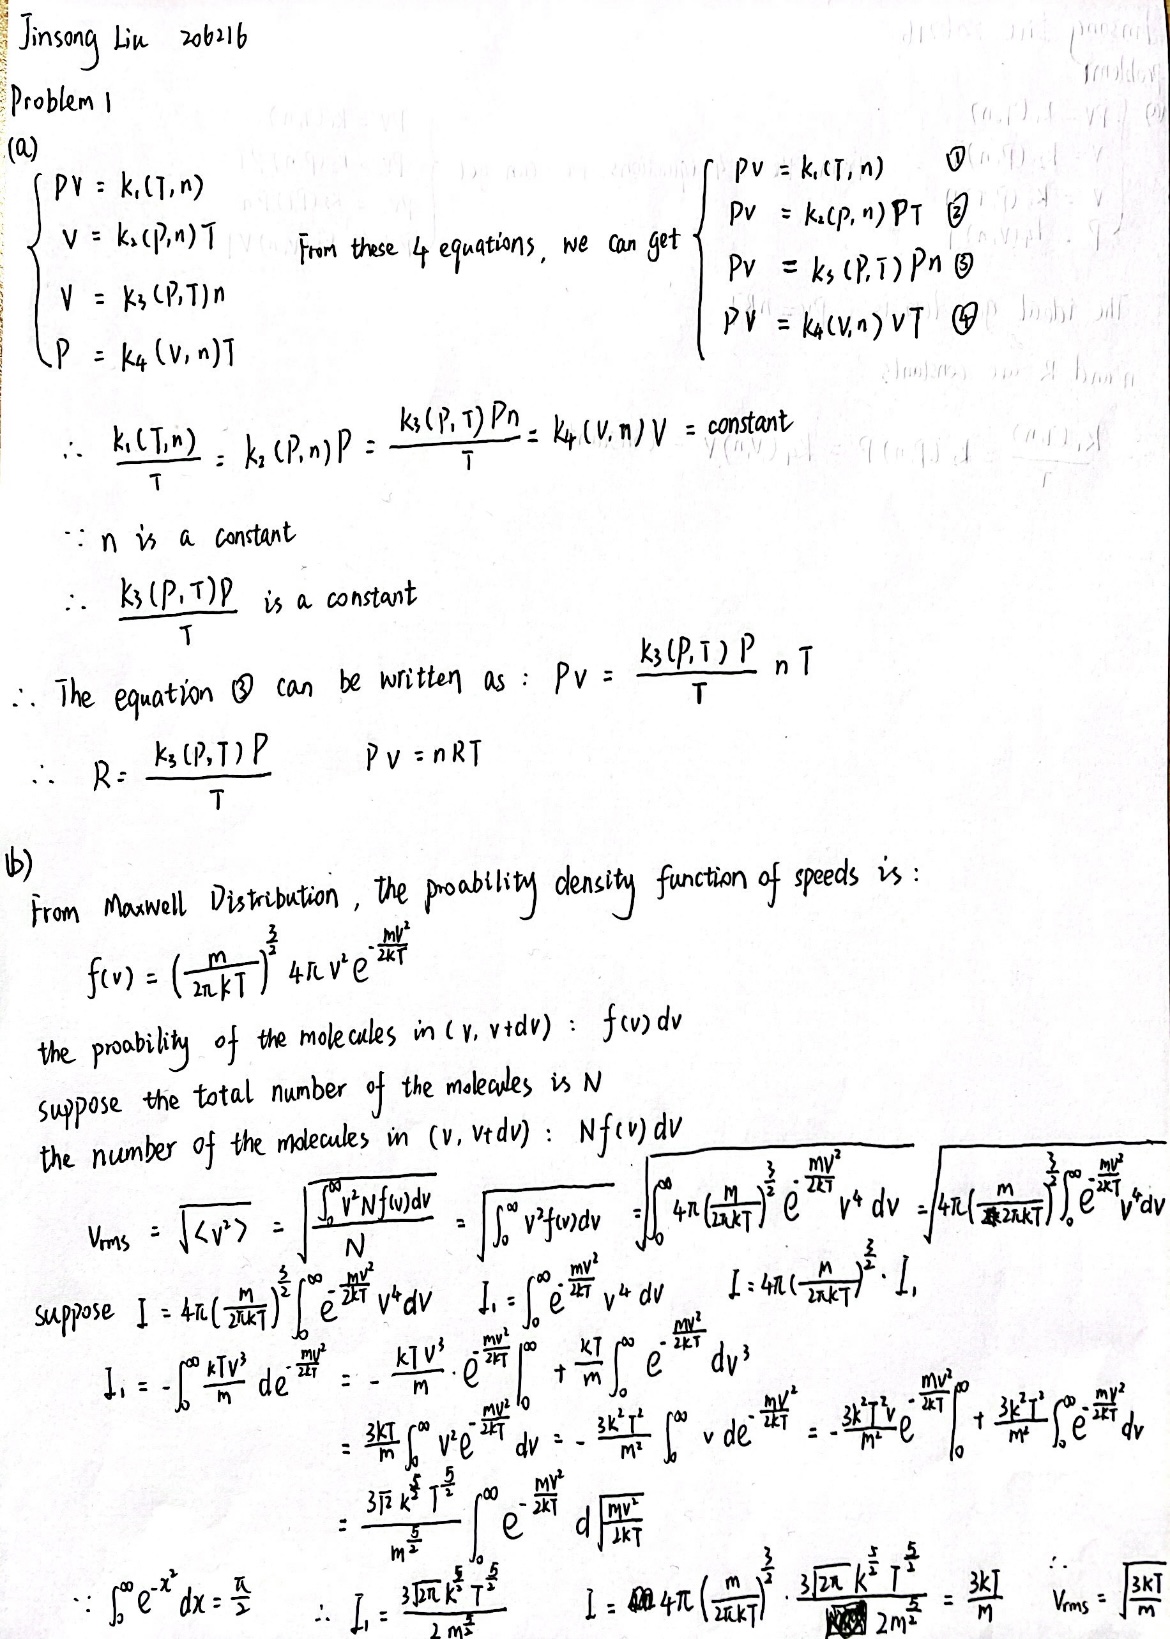 Jinsong Liu 206216
Problem 1
(a)
{ PV = k₁(T,n)
V = k₂(P,n)T
V = k₃(P,T)n
P = k₄(V,n)T
From these 4 equations, we can get
{ PV = k₁(T,n) ①
PV = k₂(P,n)PT ②
PV = k₃(P,T)Pn ③
PV = k₄(V,n)VT ④
∴ k₁(T,n)/T = k₂(P,n)P = k₃(P,T)Pn/T = k₄(V,n)V = constant
∵ n is a constant
∴ k₃(P,T)P/T is a constant
∴ The equation ③ can be written as : PV = k₃(P,T)P/T nT
∴ R = k₃(P,T)P/T PV = nRT
(b)
From Maxwell Distribution, the proability density function of speeds is :
f(v) = (m/2πkT)^(3/2) 4πv² e^(-mv²/2kT)
the proability of the molecules in (v, v+dv) : f(v)dv
suppose the total number of the molecules is N
the number of the molecules in (v, v+dv) : Nf(v)dv
Vrms = √<v²> = √(∫₀^∞ v²Nf(v)dv / N) = √(∫₀^∞ v²f(v)dv) = √(∫₀^∞ 4π(m/2πkT)^(3/2) e^(-mv²/2kT) v⁴ dv) = √(4π(m/2πkT)^(3/2) ∫₀^∞ e^(-mv²/2kT) v⁴dv)
suppose I = 4π(m/2πkT)^(3/2) ∫₀^∞ e^(-mv²/2kT) v⁴dv I₁ = ∫₀^∞ e^(-mv²/2kT) v⁴ dv I = 4π(m/2πkT)^(3/2) · I₁
I₁ = -∫₀^∞ kTv³/m de^(-mv²/2kT) = -kTv³/m · e^(-mv²/2kT) |₀^∞ + kT/m ∫₀^∞ e^(-mv²/2kT) dv³
= 3kT/m ∫₀^∞ v²e^(-mv²/2kT) dv = -3k²T²/m² ∫₀^∞ v de^(-mv²/2kT) = -3k²T²v/m² e^(-mv²/2kT) |₀^∞ + 3k²T²/m² ∫₀^∞ e^(-mv²/2kT) dv
= 3√2 k^(5/2) T^(5/2) / m^(5/2) ∫₀^∞ e^(-mv²/2kT) d√(mv²/2kT)
∵ ∫₀^∞ e^(-x²) dx = π/2 ∴ I₁ = 3√(2π) k^(5/2) T^(5/2) / 2m^(5/2) I = 4π(m/2πkT)^(3/2) · 3√(2π) k^(5/2) T^(5/2) / 2m^(5/2) = 3kT/m ∴ Vrms = √(3kT/m)